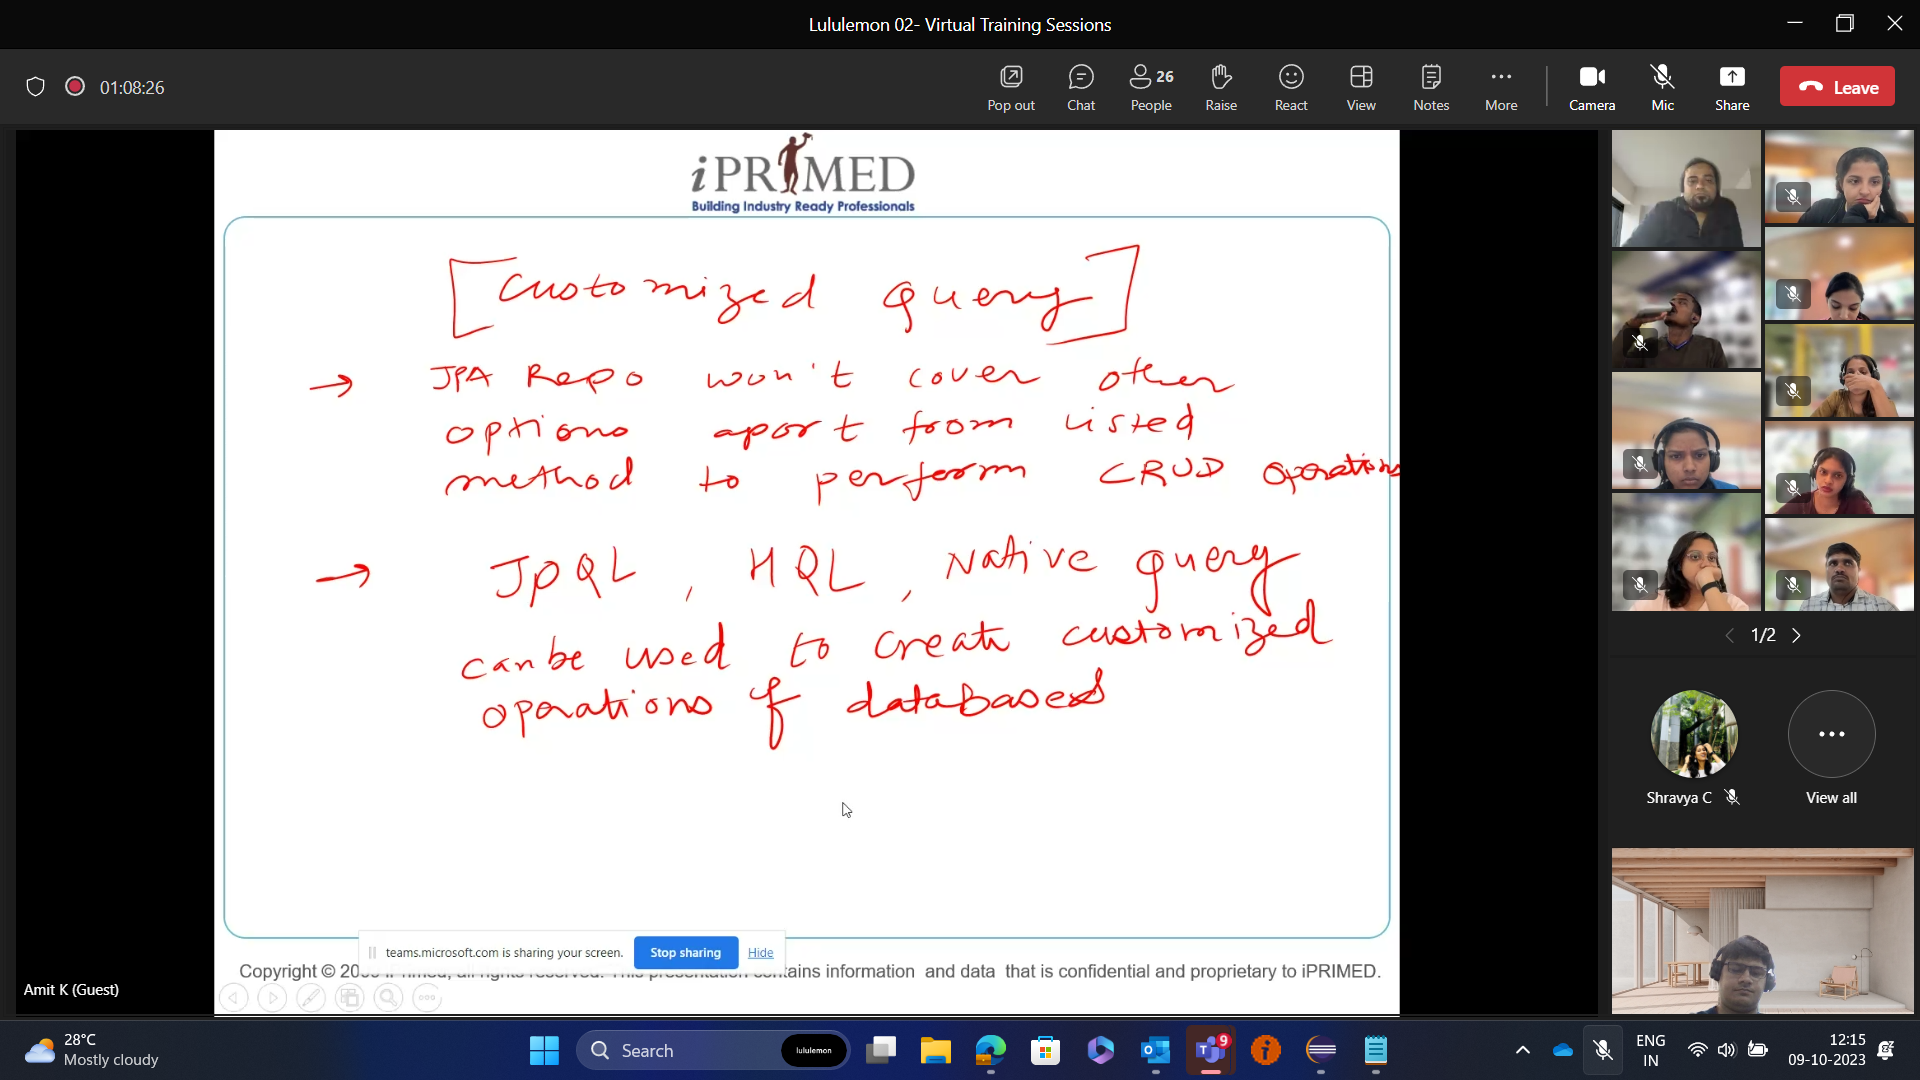 Lululemon 02- Virtual Training Sessions
01:08:26
Pop out
Chat
26
People
Raise
React
View
Notes
More
Camera
Mic
Share
Leave
iPRIMED
Building Industry Ready Professionals
[Customized query]
→ JPA Repo won't cover other
options apart from listed
method to perform CRUD operations
→ JPQL, HQL, Native query
can be used to create customized
operations of databases
teams.microsoft.com is sharing your screen.
Stop sharing
Hide
Copyright © 20
tains information and data that is confidential and proprietary to iPRIMED.
Amit K (Guest)
1/2
Shravya C
View all
28°C
Mostly cloudy
Search
lululemon
9
ENG
IN
12:15
09-10-2023